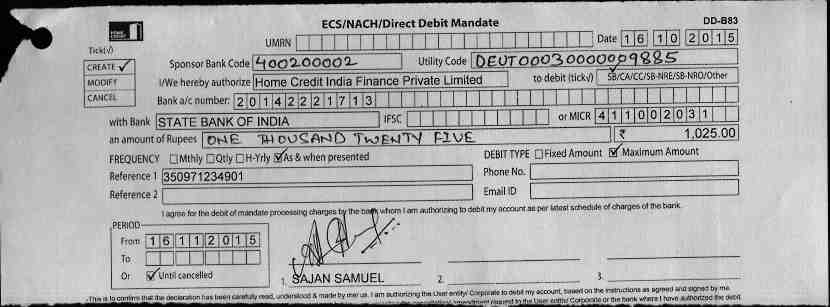 HOME CREDIT
ECS/NACH/Direct Debit Mandate DD-B83
UMRN Date 16 10 2015
Tick(√)
CREATE ✓ Sponsor Bank Code 400200002 Utility Code DEUT00030000009885
MODIFY I/We hereby authorize Home Credit India Finance Private Limited to debit (tick√) SB/CA/CC/SB-NRE/SB-NRO/Other
CANCEL Bank a/c number: 20142221713
with Bank STATE BANK OF INDIA IFSC or MICR 411002031
an amount of Rupees ONE THOUSAND TWENTY FIVE ₹ 1,025.00
FREQUENCY ☐ Mthly ☐ Qtly ☐ H-Yrly ☑ As & when presented DEBIT TYPE ☐ Fixed Amount ☑ Maximum Amount
Reference 1 350971234901 Phone No.
Reference 2 Email ID
I agree for the debit of mandate processing charges by the bank whom I am authorizing to debit my account as per latest schedule of charges of the bank.
PERIOD
From 16 11 2015
To
Or ☑ Until cancelled
1. SAJAN SAMUEL 2. 3.
This is to confirm that the declaration has been carefully read, understood & made by me/us. I am authorizing the User entity/ Corporate to debit my account, based on the instructions as agreed and signed by me.